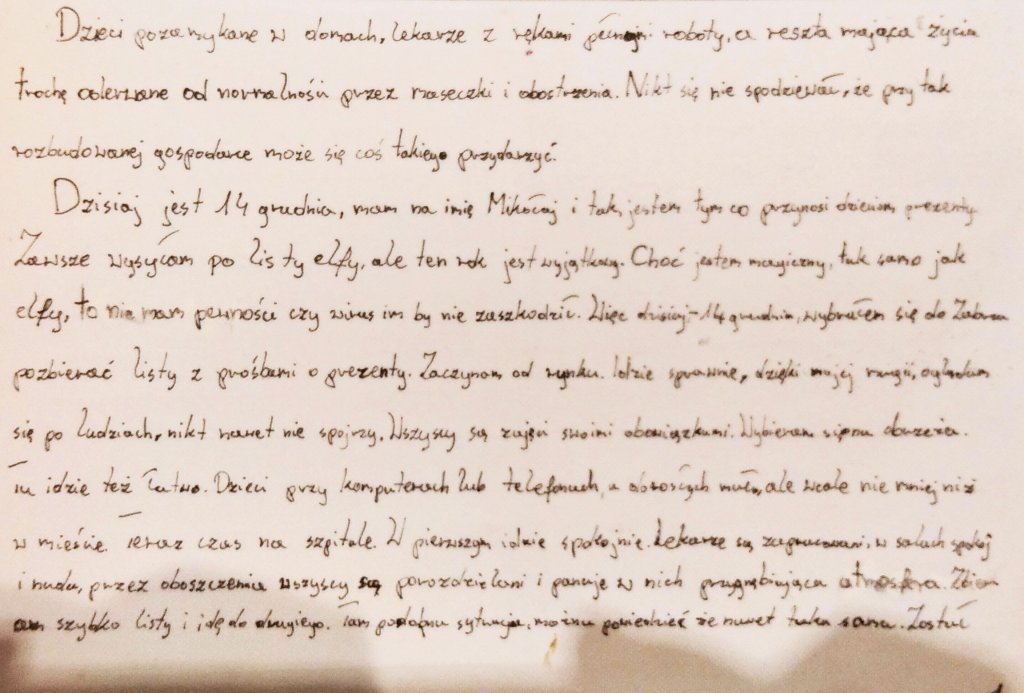 Dzieci pozamykane w domach, lekarze z rękami pełnymi roboty, a reszta mająca życie
trochę oderwane od normalności przez maseczki i obostrzenia. Nikt się nie spodziewał, że przy tak
rozbudowanej gospodarce może się coś takiego przydarzyć.
Dzisiaj jest 14 grudnia, mam na imię Mikołaj i tak, jestem tym co przynosi dzieciom prezenty.
Zawsze wysyłam po listy elfy, ale ten rok jest wyjątkowy. Choć jestem magiczny, tak samo jak
elfy, to nie mam pewności czy wirus im by nie zaszkodził. Więc dzisiaj - 14 grudnia, wybrałem się do
pozbierać listy z prośbami o prezenty. Zaczynam od rynku. Idzie sprawnie, dzięki mojej magii, oglądam
się po ludziach, nikt nawet nie spojrzy. Wszyscy są zajęci swoimi obowiązkami. Wybieram się na obrzeża.
Tu idzie też łatwo. Dzieci przy komputerach lub telefonach, a dorosłych mało, ale wcale nie mniej niż
w mieście. Teraz czas na szpitale. W pierwszym idzie spokojnie. Lekarze są zapracowani, w salach spokój
i nuda, przez oboszczenia wszyscy są porozdzielani i panuje w nich przygnębiająca atmosfera. Zbier
am szybko listy i idę do drugiego. Tam podobna sytuacja, można powiedzieć że nawet taka sama. Został